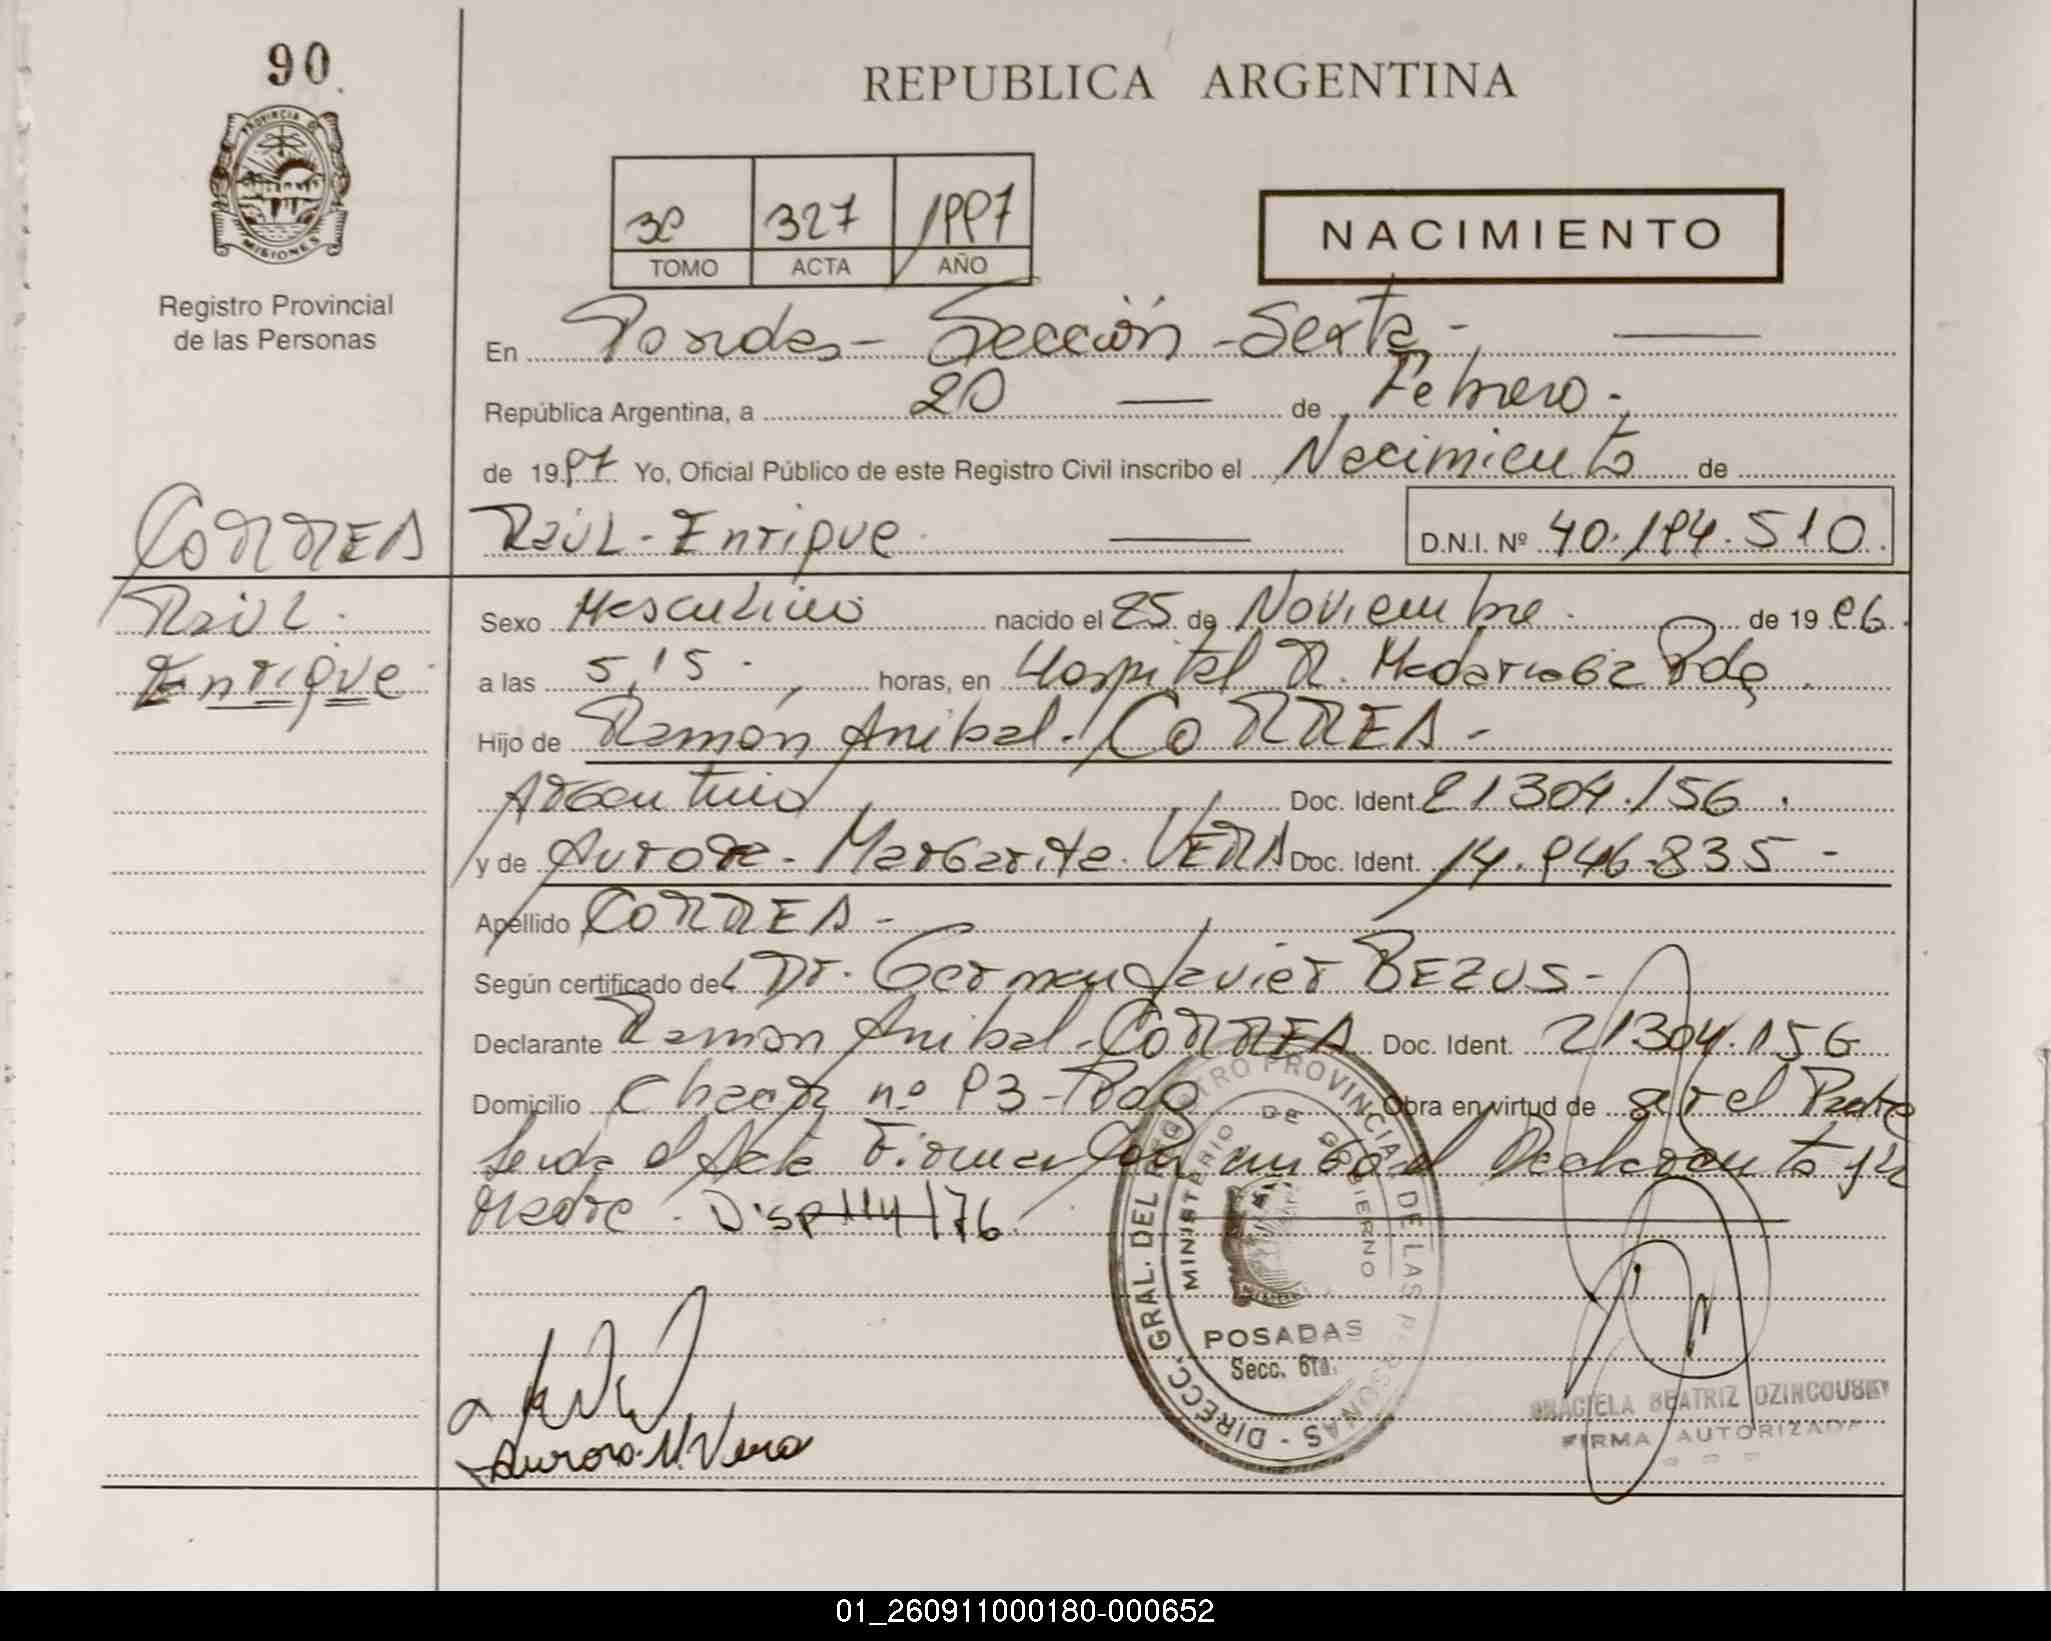 90
REPUBLICA ARGENTINA
PROVINCIA DE
MISIONES
Registro Provincial
de las Personas
327 1997
TOMO ACTA AÑO
NACIMIENTO
En Posadas - Sección - Sexta -
República Argentina, a 20 de Febrero.
de 1997 Yo, Oficial Público de este Registro Civil inscribo el Nacimiento de
CORREA Raúl - Enrique D.N.I. Nº 40.194.510.
Raúl. Sexo Masculino nacido el 25 de Noviembre. de 19 96.
Enrique a las 5,15. horas, en Hospital R. Madariaga Pdas.
Hijo de Ramón Anibal. CORREA -
Argentino Doc. Ident. 21304.156.
y de Aurora - Margarita. VERA Doc. Ident. 14.946.835 -
Apellido CORREA -
Según certificado del Dr. German Javier BEZUS -
Declarante Ramón Anibal - CORREA Doc. Ident. 21304.156
Domicilio Chacra nº 93 - Pdas Obra en virtud de ser el Padre
Leida el Acta Firman ambos el Declarante y la
Madre. Disp 114/76.
DIRECC. GRAL. DEL REGISTRO PROVINCIAL DE LAS PERSONAS -
MINISTERIO DE GOBIERNO
POSADAS
Secc. 6ta.
Aurora M. Vera
GRACIELA BEATRIZ
FIRMA AUTORIZADA
01_260911000180-000652